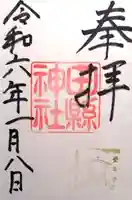 奉拝
田縣
神社
令和六年一月八日